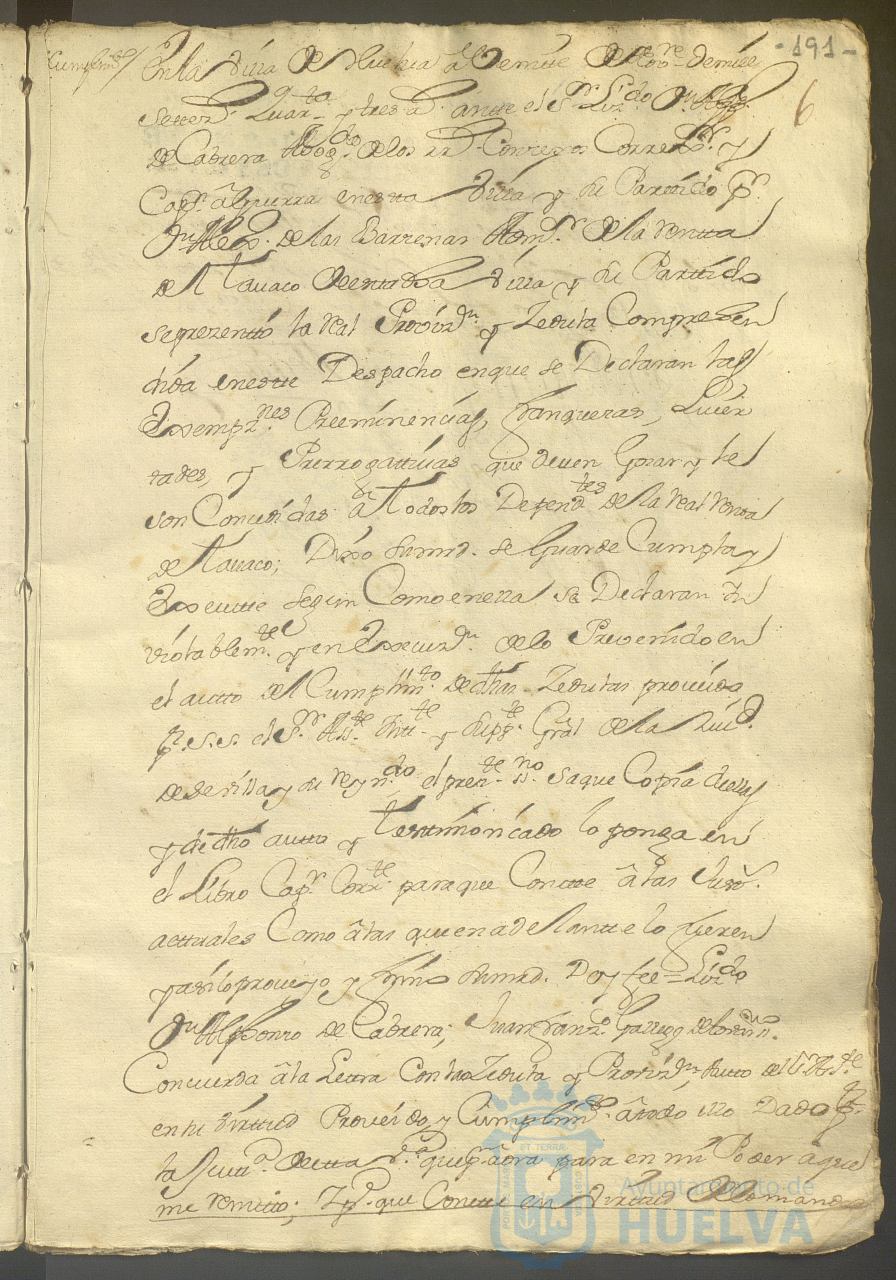 -191-
6
Cumplimto/
En la Villa de Huelva a Veinte de Nove de mill
settezs quarta y tres as ante el Sr Lizdo Dn Alfo
de Cabrera Abogdo de los Rs Consejos Correxor y
Capn a Guerra en esta Villa y su Partido pr
Dn de las Barrenas Admor de la Renta
de Tavaco de esta dha Villa y su Partido
se prezentó la Real Provizn y Zedula Comprehen
dida en este Despacho en que se Declaran las
Exempznes Preeminencias, franquezas, Liver
tades, y Prerrogattivas que deven Gozar y le
son Concedidas a todos los Dependtes de la Real Renta
de Tavaco; Dixo su md. se Guarde Cumpla y
Execute segun Como en ella se Declaran In
violablemte y en Execuzn de lo Prevenido en
el autto del Cumplimto de dhas Zedulas proveida
pr S.S. el Sr Asste Intte y Supte Gral de la Ziud
de Sevilla y su Reyndo el presente no saque Copia de ellas
y de dho autto y testimoniado lo ponga en
el Libro Capr Corrte para que Conste a las Justs
acttuales Como a las que en adelantte lo fueren
y assi lo proveyo y firmó su md. Doy fee = Lizdo
Dn Alphonso de Cabrera; Juan Franzo
Concuerda a la Letra Con la Zedula y Provizn Autto del Sr Asste
en su virttud Proveido y Cumplimto a todo ello Dado pr
la Justa de esta Va que pr aora para en mi Poder a que
me remito; Y pa que Conste en Virtud de lo mandado
Ayuntamiento de
HUELVA